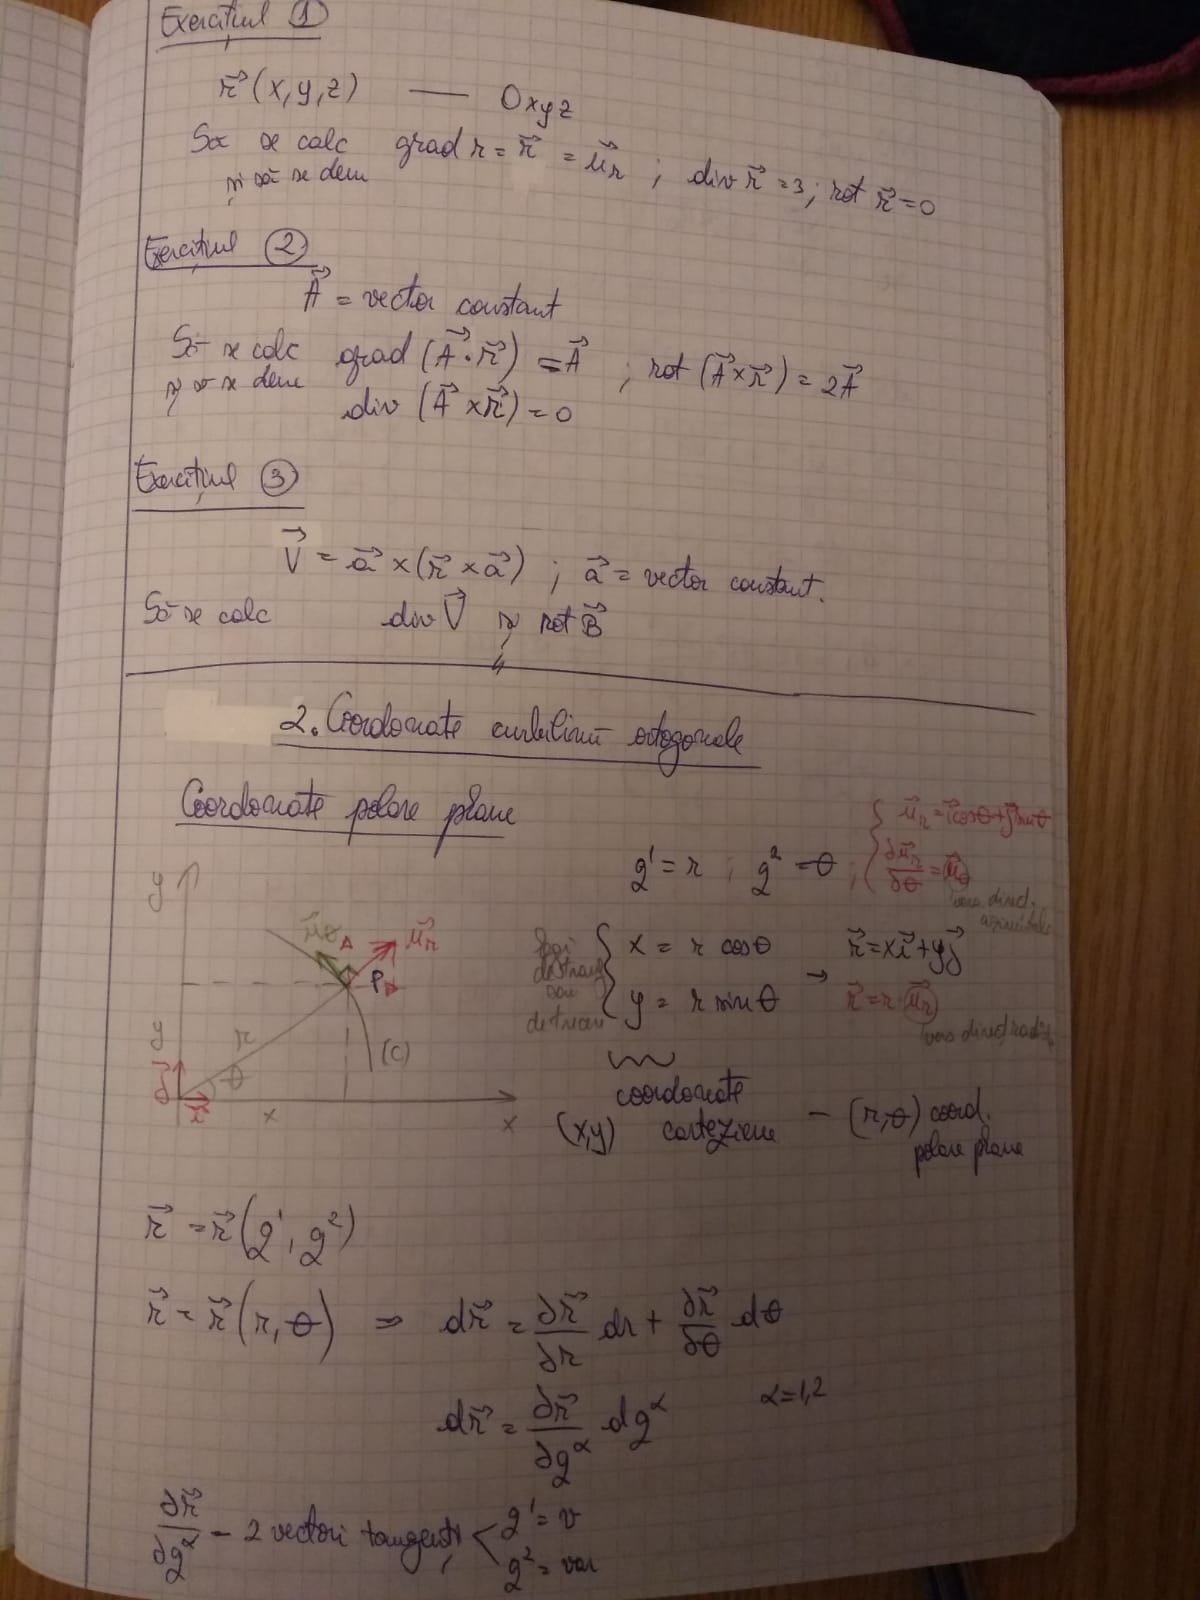 Exercițiul 1
r⃗ (x,y,z) — Oxyz
Să se calc grad r = r⃗ = u⃗r ; div r⃗ = 3; rot r⃗ = 0
și să se dem
Exercițiul 2
A⃗ = vector constant
Să se calc grad (A⃗ · r⃗) = A⃗ ; rot (A⃗ × r⃗) = 2A⃗
și să se dem div (A⃗ × r⃗) = 0
Exercițiul 3
V⃗ = a⃗ × (r⃗ × a⃗) ; a⃗ = vector constant.
Să se calc div V⃗ și rot B⃗
2. Coordonate curbilinii ortogonale
Coordonate polare plane
q¹ = r ; q² = θ ; { u⃗r = i⃗cosθ + j⃗sinθ
∂u⃗r/∂θ = u⃗θ
vers. direcț. azimutale
y
u⃗θ A u⃗r
P
y r θ (C)
j⃗ i⃗ x x
de trecere
{ x = r cosθ r⃗ = xi⃗ + yj⃗
y = r sinθ → r⃗ = r · u⃗r
vers direct radiale
coordonate
(x,y) carteziene – (r,θ) coord.
polare plane
r⃗ = r⃗(q¹, q²)
r⃗ = r⃗(r, θ) ⇒ dr⃗ = ∂r⃗/∂r dr + ∂r⃗/∂θ dθ
dr⃗ = ∂r⃗/∂q^α dq^α α = 1,2
∂r⃗/∂q^α – 2 vectori tangenți < q¹ = v
q² = var